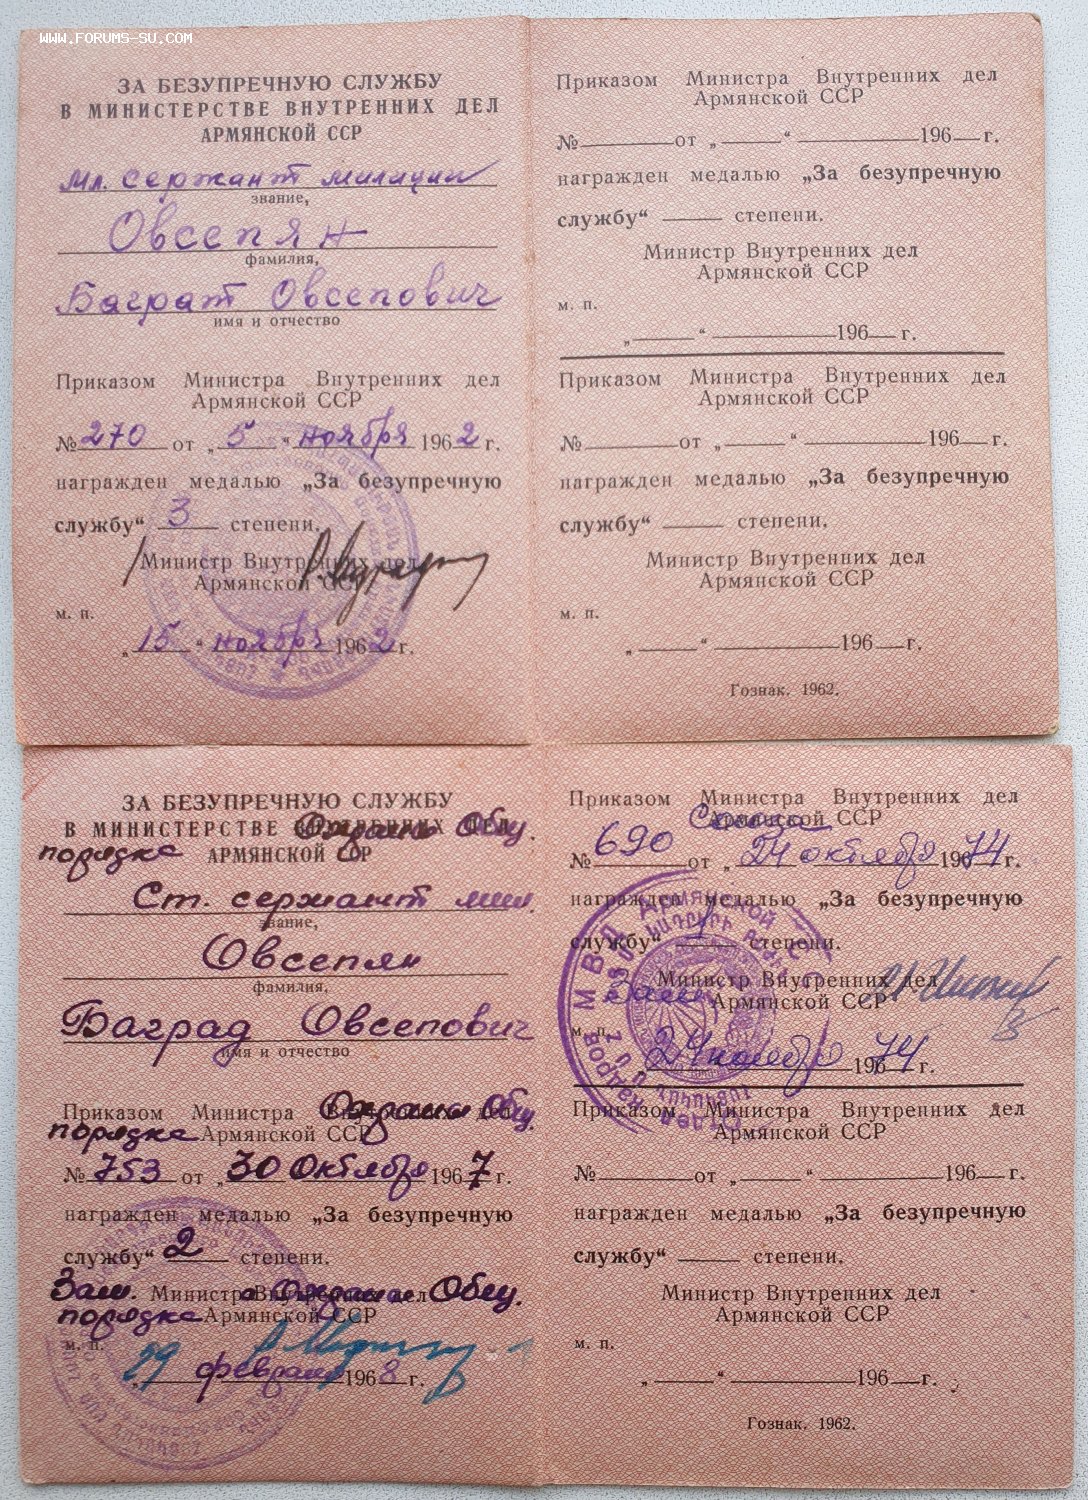 WWW.FORUMS-SU.COM
ЗА БЕЗУПРЕЧНУЮ СЛУЖБУ
В МИНИСТЕРСТВЕ ВНУТРЕННИХ ДЕЛ
АРМЯНСКОЙ ССР
Мл. сержант милиции
звание,
Овсепян
фамилия,
Баграт Овсепович
имя и отчество
Приказом Министра Внутренних дел
Армянской ССР
№ 270 от „ 5 “ ноября 1962 г.
награжден медалью „За безупречную
службу“ 3 степени.
Министр Внутренних дел
Армянской ССР
м. п.
„ 15 “ ноября 1962 г.
Приказом Министра Внутренних дел
Армянской ССР
№ от „ “ 196 г.
награжден медалью „За безупречную
службу“ степени.
Министр Внутренних дел
Армянской ССР
м. п.
„ “ 196 г.
Приказом Министра Внутренних дел
Армянской ССР
№ от „ “ 196 г.
награжден медалью „За безупречную
службу“ степени.
Министр Внутренних дел
Армянской ССР
м. п.
„ “ 196 г.
Гознак. 1962.
ЗА БЕЗУПРЕЧНУЮ СЛУЖБУ
В МИНИСТЕРСТВЕ ВНУТРЕННИХ ДЕЛ Охраны Общ.
порядка АРМЯНСКОЙ ССР
Ст. сержант мил.
звание,
Овсепян
фамилия,
Баград Овсепович
имя и отчество
Приказом Министра Внутренних дел Охраны Общ.
порядка Армянской ССР
№ 753 от „ 30 Октября 1967 г.
награжден медалью „За безупречную
службу“ 2 степени.
Зам. Министр а Внутренних дел Охраны Общ.
порядка Армянской ССР
м. п.
„ 29 февраля 1968 г.
Приказом Министра Внутренних дел
Союза Армянской ССР
№ 690 от „ 24 октября 196 74 г.
награжден медалью „За безупречную
службу“ 1 степени.
Министр Внутренних дел
Армянской ССР
м. п.
24 ноября 196 74 г.
МВД Армянской ССР
Отдел кадров
Приказом Министра Внутренних дел
Армянской ССР
№ от „ “ 196 г.
награжден медалью „За безупречную
службу“ степени.
Министр Внутренних дел
Армянской ССР
м. п.
„ “ 196 г.
Гознак. 1962.